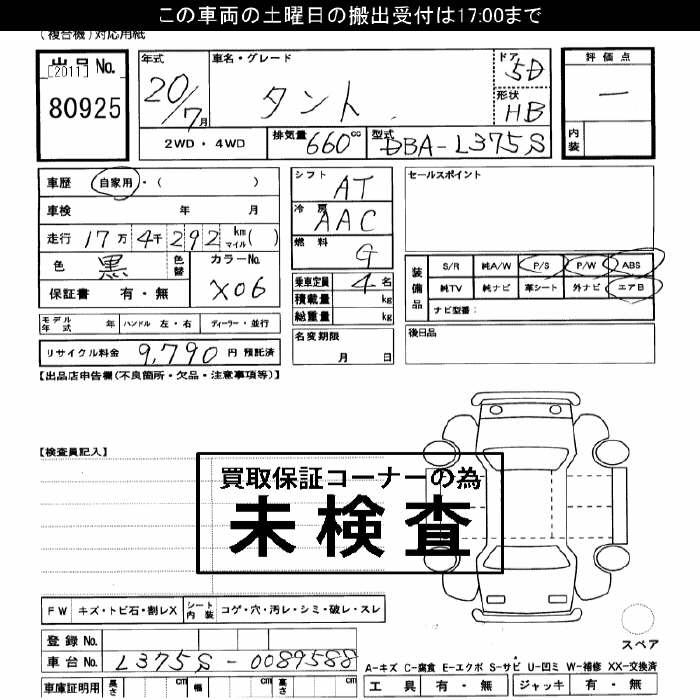 この車両の土曜日の搬出受付は17:00まで
(複合機)対応用紙
出品No.
[2011]
80925
年式 20/7月
車名・グレード タント
ドア 5D
形状 HB
2WD・4WD 排気量 660cc 型式 DBA-L375S
評価点 —
内装
車歴 自家用・( )
車検 年 月
走行 17万4千292 km マイル( )
色 黒 色替 カラーNo. X06
保証書 有・無
モデル年式 年 ハンドル 左・右 ディーラー・並行
リサイクル料金 9,790円 預託済
シフト AT
冷房 AAC
燃料 G
乗車定員 4名
積載量 kg
総重量 kg
名変期限 月 日
セールスポイント
装備品 S/R 純A/W P/S P/W ABS
純TV 純ナビ 革シート 外ナビ エアB
ナビ型番:
後日品
【出品店申告欄(不良箇所・欠品・注意事項等)】
【検査員記入】
買取保証コーナーの為
未検査
FW キズ・トビ石・割レX シート内装 コゲ・穴・汚レ・シミ・破レ・スレ
スペア
登録No.
車台No. L375S-0089588
A-キズ C-腐食 E-エクボ S-サビ U-凹ミ W-補修 XX-交換済
車庫証明用 長さ cm 幅 cm 高さ cm
工具 有・無 ジャッキ 有・無